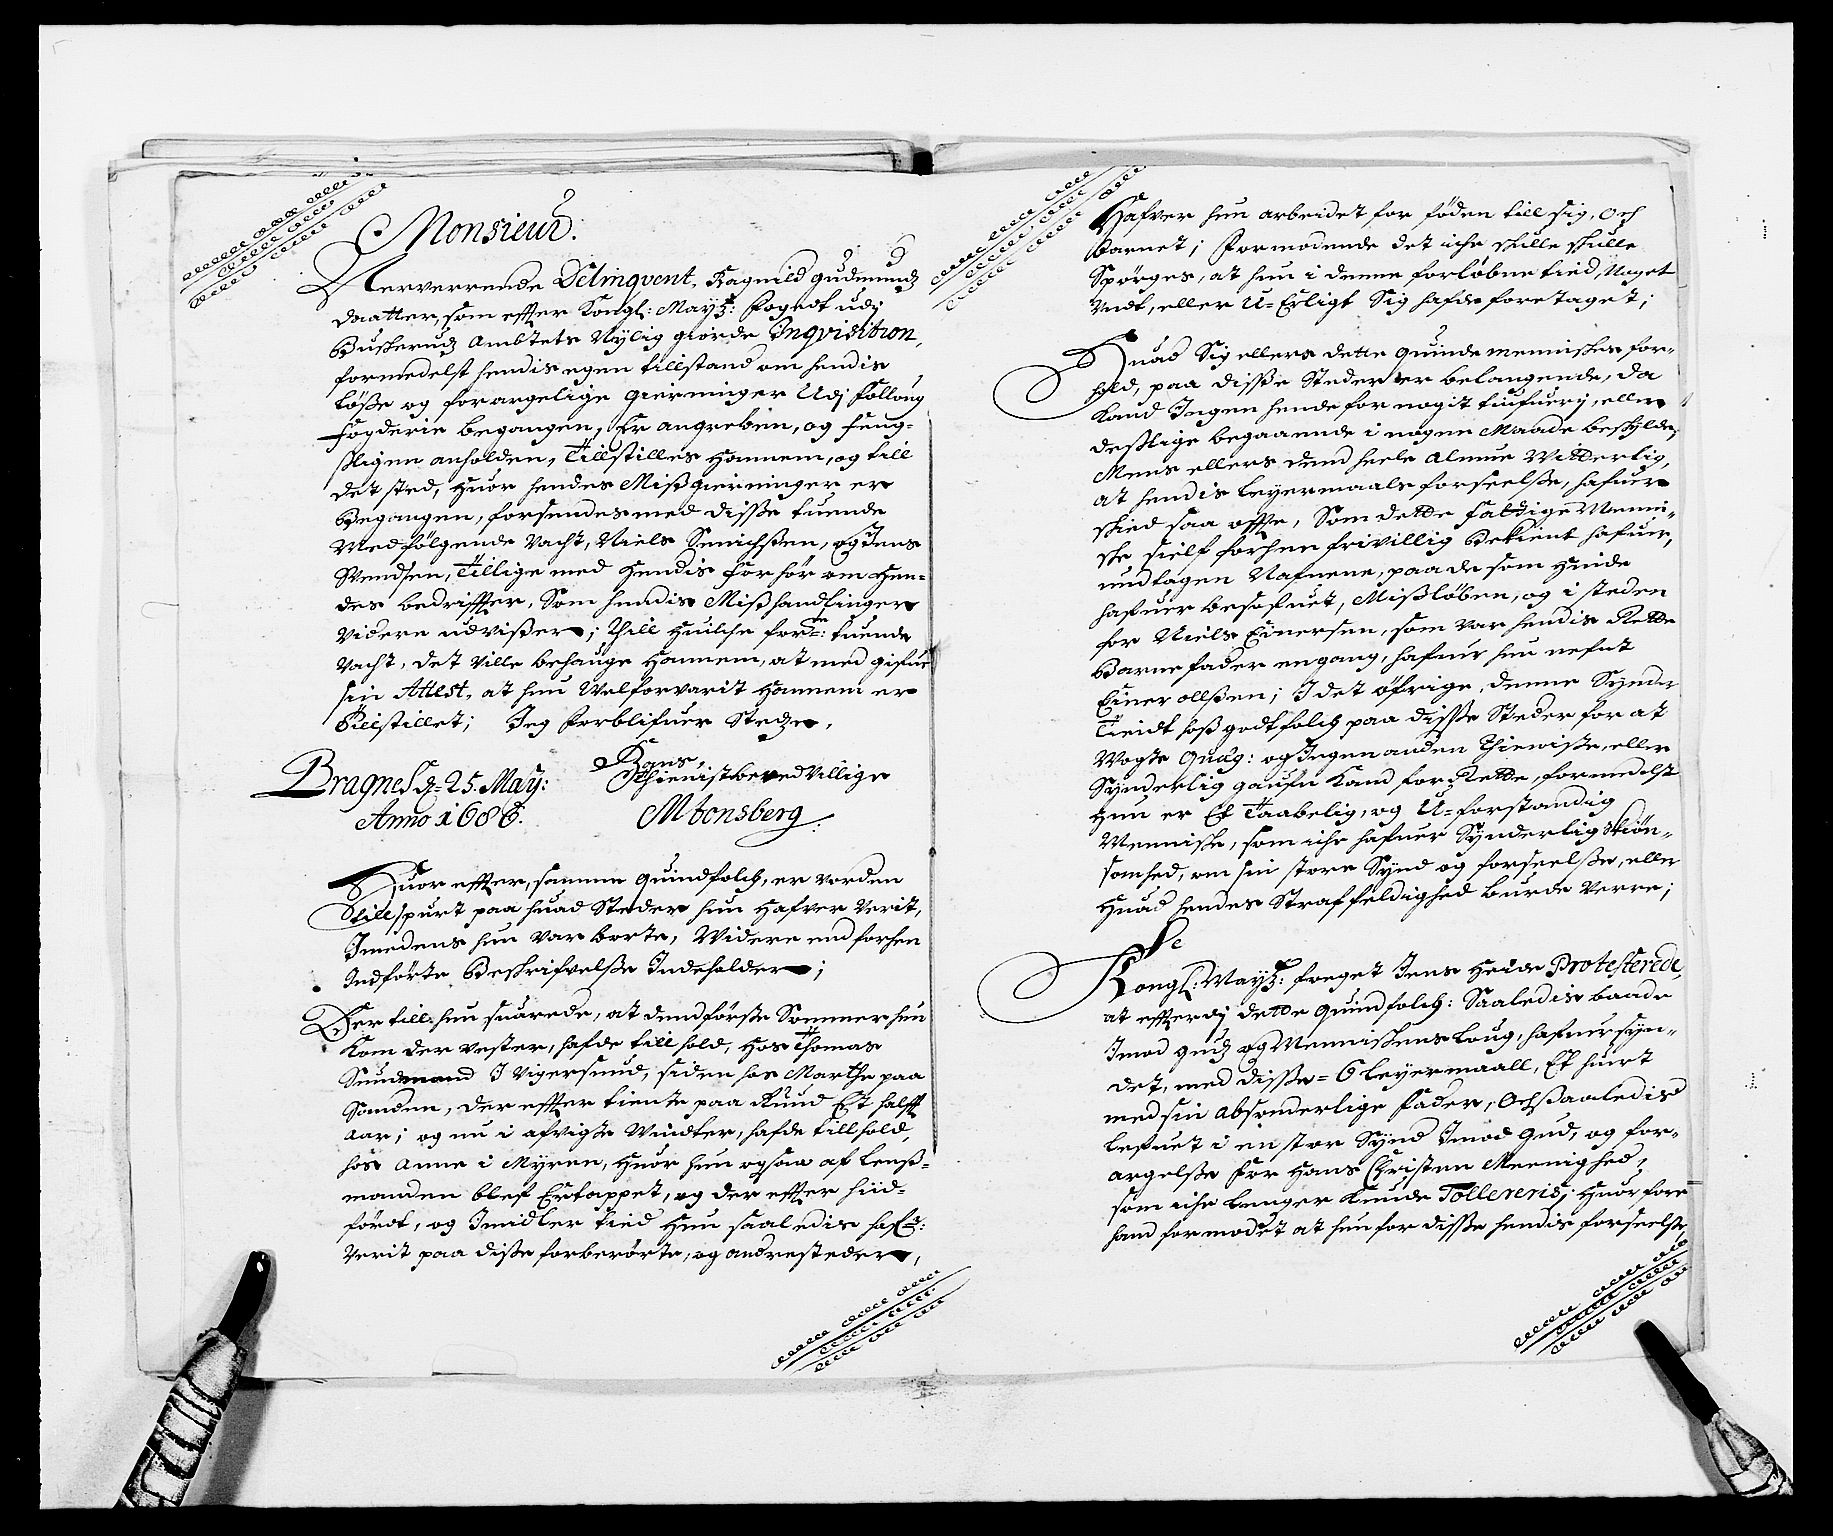 Monsieur.
Nerverrende Delinqvent, Ragnild Gudmunds
daatter, som effter Kongl: Mayts: Fogedt udj
Buskeruds Ambtets Nylig giorde Inqvisition,
formedelst hendis egen tillstand om hendis
løsse og forargelige gierninger Udj Follong
Fogderie begangen, Er angreben, og feng-
sligen anholden, Tillstilles hannem, og till
det sted, huor hendes Missgierninger er
Begangen, forsendes med disse tuende
Medfølgende Vacht, Niels Simichssen, og Jens
Svendsen, Tillige med hendis forhør om hen-
des bedriffter, som hendis Misshandlinger
Videre udvisser; Thill huilche forne: tuende
Vacht, det ville behauge hannem, at med gifue
sin Attest, at hun Velforvarit hannem er
Tillstillet; Jeg forblifuer Stedze,
Hans,
Bragnes d= 25. May: Thienistberedvillige
Anno 1686. M tonsberg
Huor effter, samme quindfolch, er vorden
tillspurt paa huad Steder hun hafver Verit,
Imedens hun var borte, Widere end forhen
Indførte Beskrifvelsse Indeholder;
Der till hun suarede, at dend første Sommer hun
kom der vester, hafde till hold, hos Thomas
Sundmand I Vigersund, siden hos Marthe paa
Sanden, der effter tiente paa Ruud Et halfft
aar; og nu i afvigte Windter, hafde till hold,
hos Anne i Myren, huor hun ogsaa af lenss-
manden blef Ertappet, og der effter hiid-
ført, og Imidler tied hun saaledis hafr:
Verit paa disse forberørte, og andre steder,
Hafver hun arbeidet for føden till sig, och
barnet; formodende det iche skulle skulle
Spørges, at hun i denne forløbne tied, Noget
Undt, eller U-Erligt sig hafde foretaget;
Huad Sig ellers dette quinde menniskes for-
hold, paa disse Steder er belangende, da
kand Ingen hende for nogit tiufueri, eller
desslige begaaende i nogen Maade beskylde,
Mens ellers dend heele Almue Witterlig,
at hendis leyermaals forseelsse, hafuer
skied saa offte, Som dette fattige Menni-
ske sielf forhen frivillig Bekient hafuer,
undtagen Nafnene, paa de som hende
hafuer besofuet, Missløben, og i steden
for Niels Einersen, som var hendis Rette
Barnefader engang, hafuer hun nefnt
Einer ollssen; I det øfrige, denne Synder
Tient hoss godtfolch paa disse Steder for at
Wogte Quæg: og Ingen anden Thieniste, eller
Synderlig gaufn kand forRette, formedelst
hun er Et Taabelig, og U-forstandig
Menniske, som iche hafuer Synderlig skiøn-
somhed, om sin store Synd og forseelsse, eller
huad hendes Straffeldighed burde verre;
Kongl: Mayts: foeget Jens Heide Protesterede,
at effterdj dette quindfolch: Saaledis baade
Imod gud og Menniskens loug, hafuer syn-
det, med disse= 6 leyermaall, Et huert
med sin absonderlige Fader, Ochsaaledis
lefuet i en stor Synd Imod Gud, og for-
argelsse for hans Christen Meenighed,
som iche lenger kunde Tollereris; huorfore
hand formodet at hun for disse hendis forseelsse